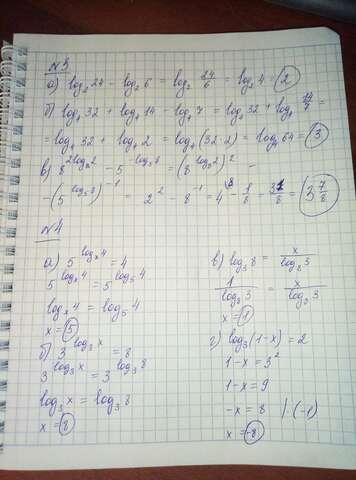 №3
а) log₂ 24 − log₂ 6 = log₂ 24/6 = log₂ 4 = 2
б) log₄ 32 + log₄ 14 − log₄ 7 = log₄ 32 + log₄ 14/7 =
= log₄ 32 + log₄ 2 = log₄ (32·2) = log₄ 64 = 3
в) 8^(2log₈2) − 5^(−log₅8) = (8^(log₈2))² −
− (5^(log₅8))^(−1) = 2² − 8^(−1) = 4 − 1/8 = 31/8 = 3 7/8
№4
а) 5^(logₓ4) = 4
5^(logₓ4) = 5^(log₅4)
logₓ4 = log₅4
x = 5
б) 3^(log₃x) = 8
3^(log₃x) = 3^(log₃8)
log₃x = log₃8
x = 8
в) log₃8 = x/log₈3
1/log₈3 = x/log₈3
x = 1
г) log₃(1−x) = 2
1−x = 3²
1−x = 9
−x = 8 |·(−1)
x = −8